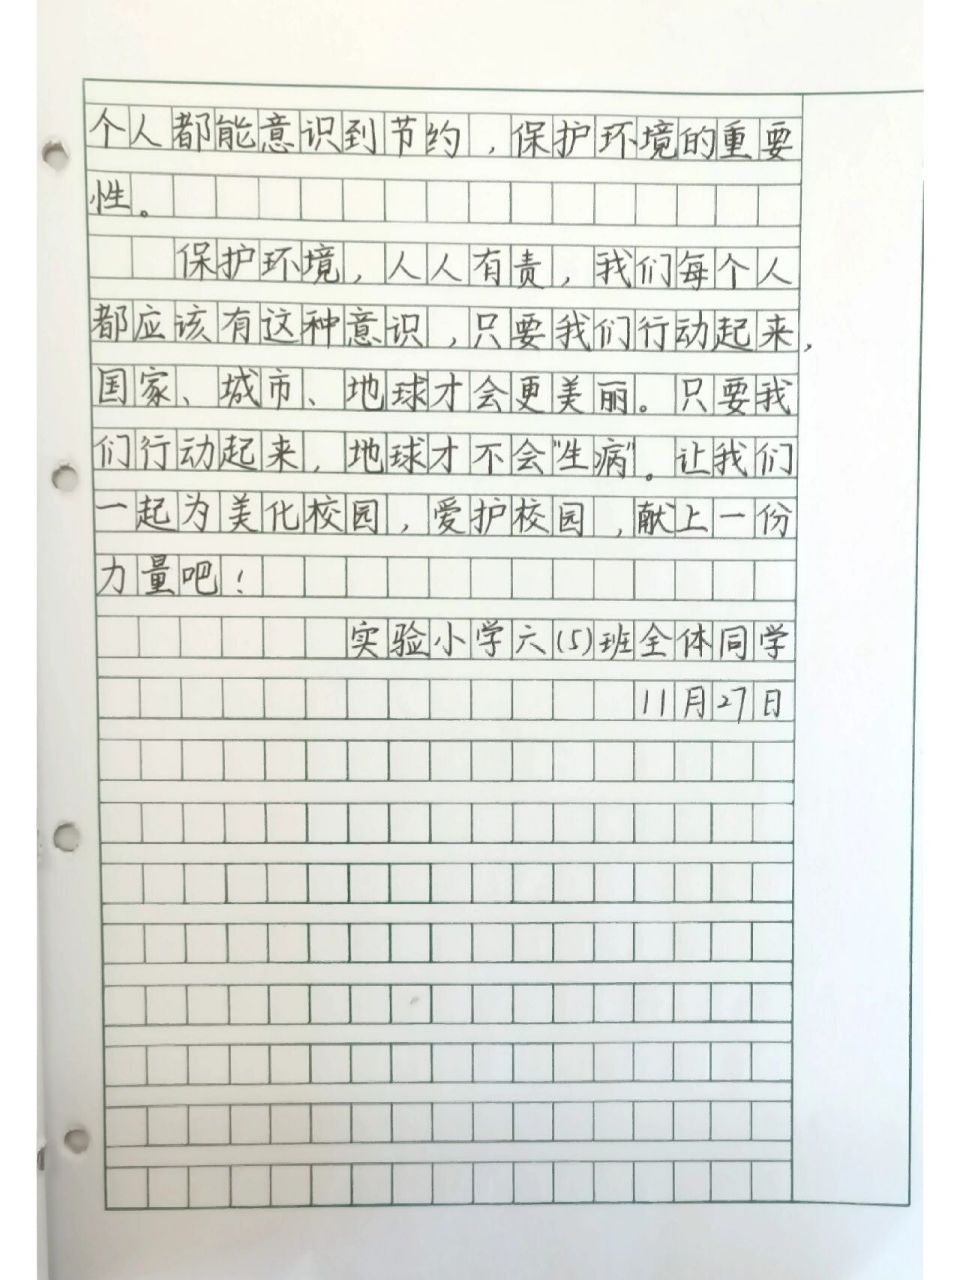 个人都能意识到节约，保护环境的重要
性。
保护环境，人人有责，我们每个人
都应该有这种意识，只要我们行动起来，
国家、城市、地球才会更美丽。只要我
们行动起来，地球才不会"生病"。让我们
一起为美化校园，爱护校园，献上一份
力量吧！
实验小学六(5)班全体同学
11月27日